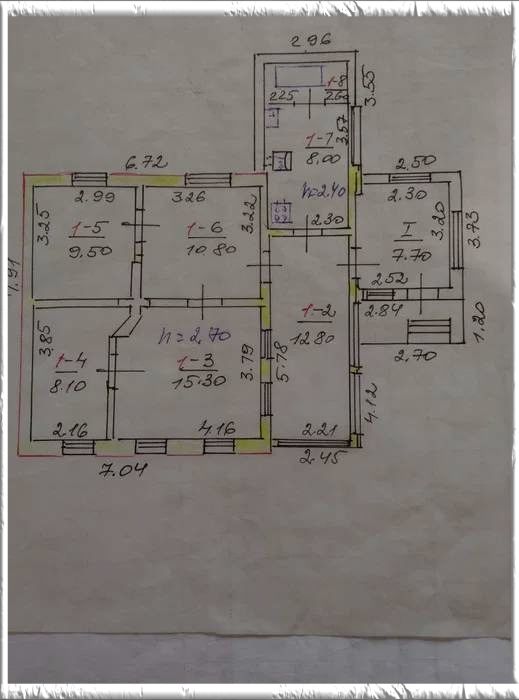 2.96
1-8
2.25
2.60
3.55
3.57
1-7
8.00
h=2.40
2.30
6.72
2.99
3.26
3.25
3.22
1-5
9.50
1-6
10.80
2.50
2.30
3.20
3.73
I
7.70
2.52
2.84
1.20
2.70
7.91
1-2
12.80
3.85
h=2.70
1-4
8.10
1-3
15.30
3.79
5.78
4.12
2.16
4.16
2.21
2.45
7.04